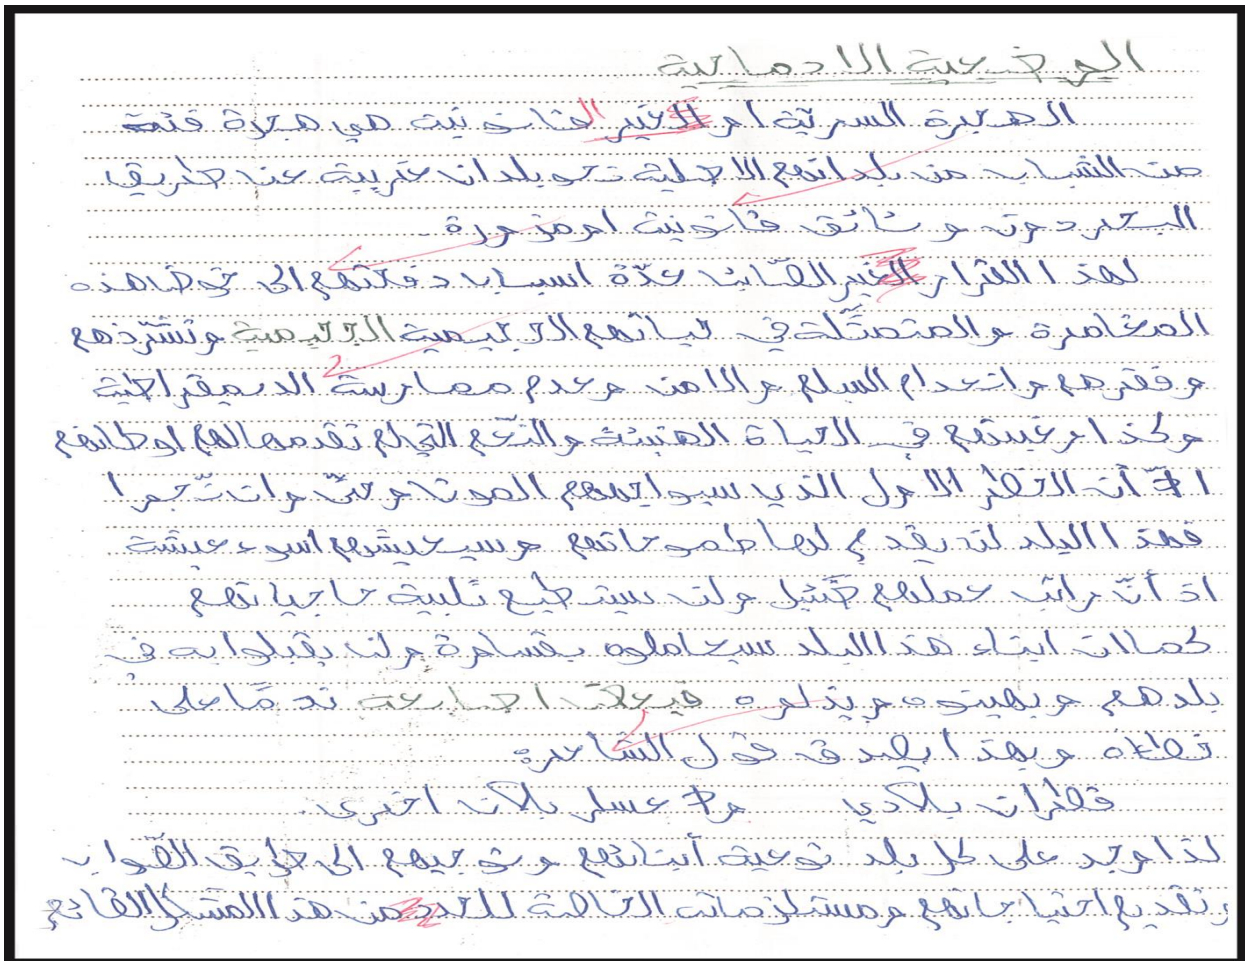 الوضعية الادماجية
الهجرة السرية او الغير القانونية هي هجرة فئة
من الشباب من بلدانهم الاصلية نحو بلدان غريبة عن طريق
البحر دون وثائق قانونية او مزورة
لهذا القرار الغير الصائب عدّة اسباب دفعتهم الى خوض هذه
المغامرة والمتمثّلة في حياتهم الجحيمية وتشرّذهم
وفقرهم وانعدام السلم والامن وعدم ممارسة الديمقراطية
وكذا رغبتهم في الحياة الهنيئة والنّعم التي لم تقدمها لهم اوطانهم
الا أن الخطر الاول الذي سيواجههم الموت وحتّى وان نّجوا
فهذا البلد لن يقدم لهم طموحاتهم وسيعيشهم اسوء عيشة
اذ أنّ راتب عملهم ضئيل ولن يستطيع تلبية حاجياتهم
كما ان ابناء هذا البلد سيعاملوه بقساوة ولن يقبلوا به في
بلدهم ويهينوه ويذلوه فيعضّ اصابعه ندمًا على
خطاه وبهذا يصدق قول الشاعر
قطران بلادي ولا عسل بلان اخرى
لذا وجد على كل بلد توعية أبنائهم وتوجيههم الى طريق الصّواب
وتقديم احتياجاتهم ومستلزماته الخاصة للحدد من هذا المشكل القائم